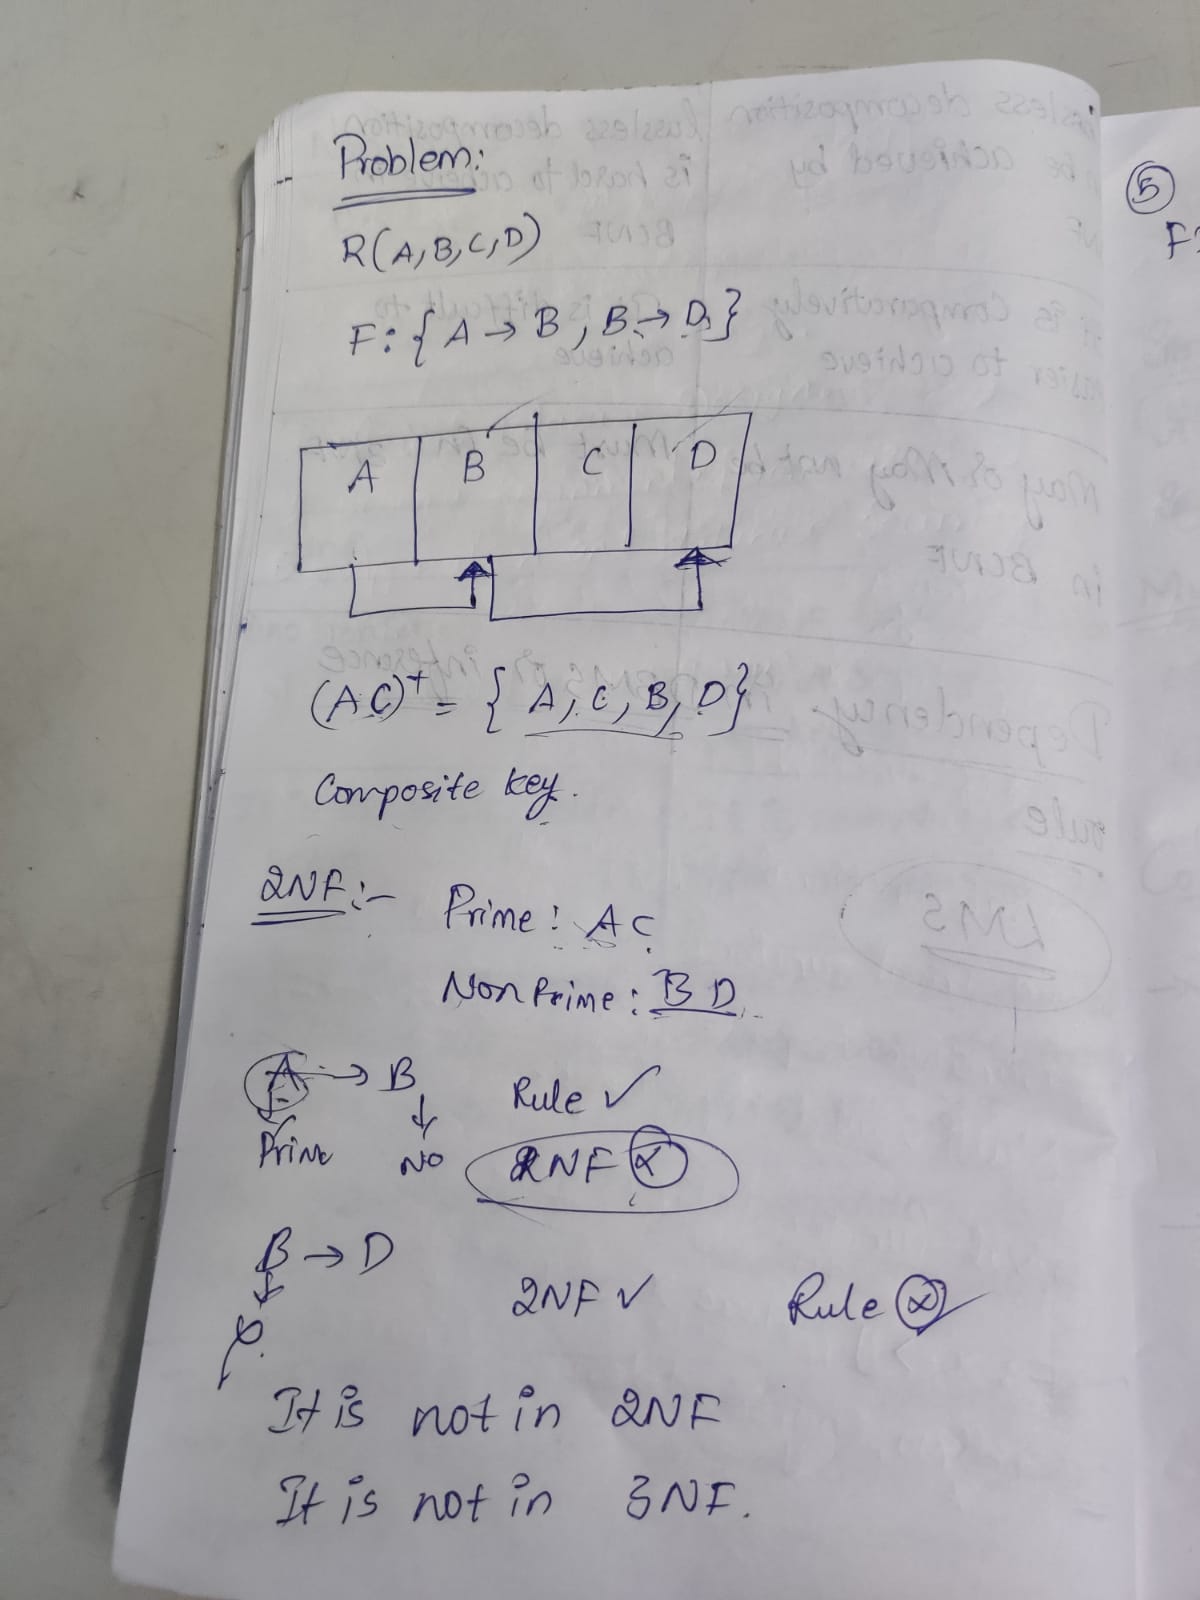 Problem:
R(A,B,C,D)
F: { A → B, B → D }
A B C D
(AC)⁺ = { A, C, B, D }
Composite key.
2NF :- Prime: AC
Non Prime: BD
A → B Rule ✓
↓ ↓
Prime NO 2NF ⓧ
B → D
↓ 2NF ✓ Rule ⓧ
It is not in 2NF
It is not in 3NF.
5